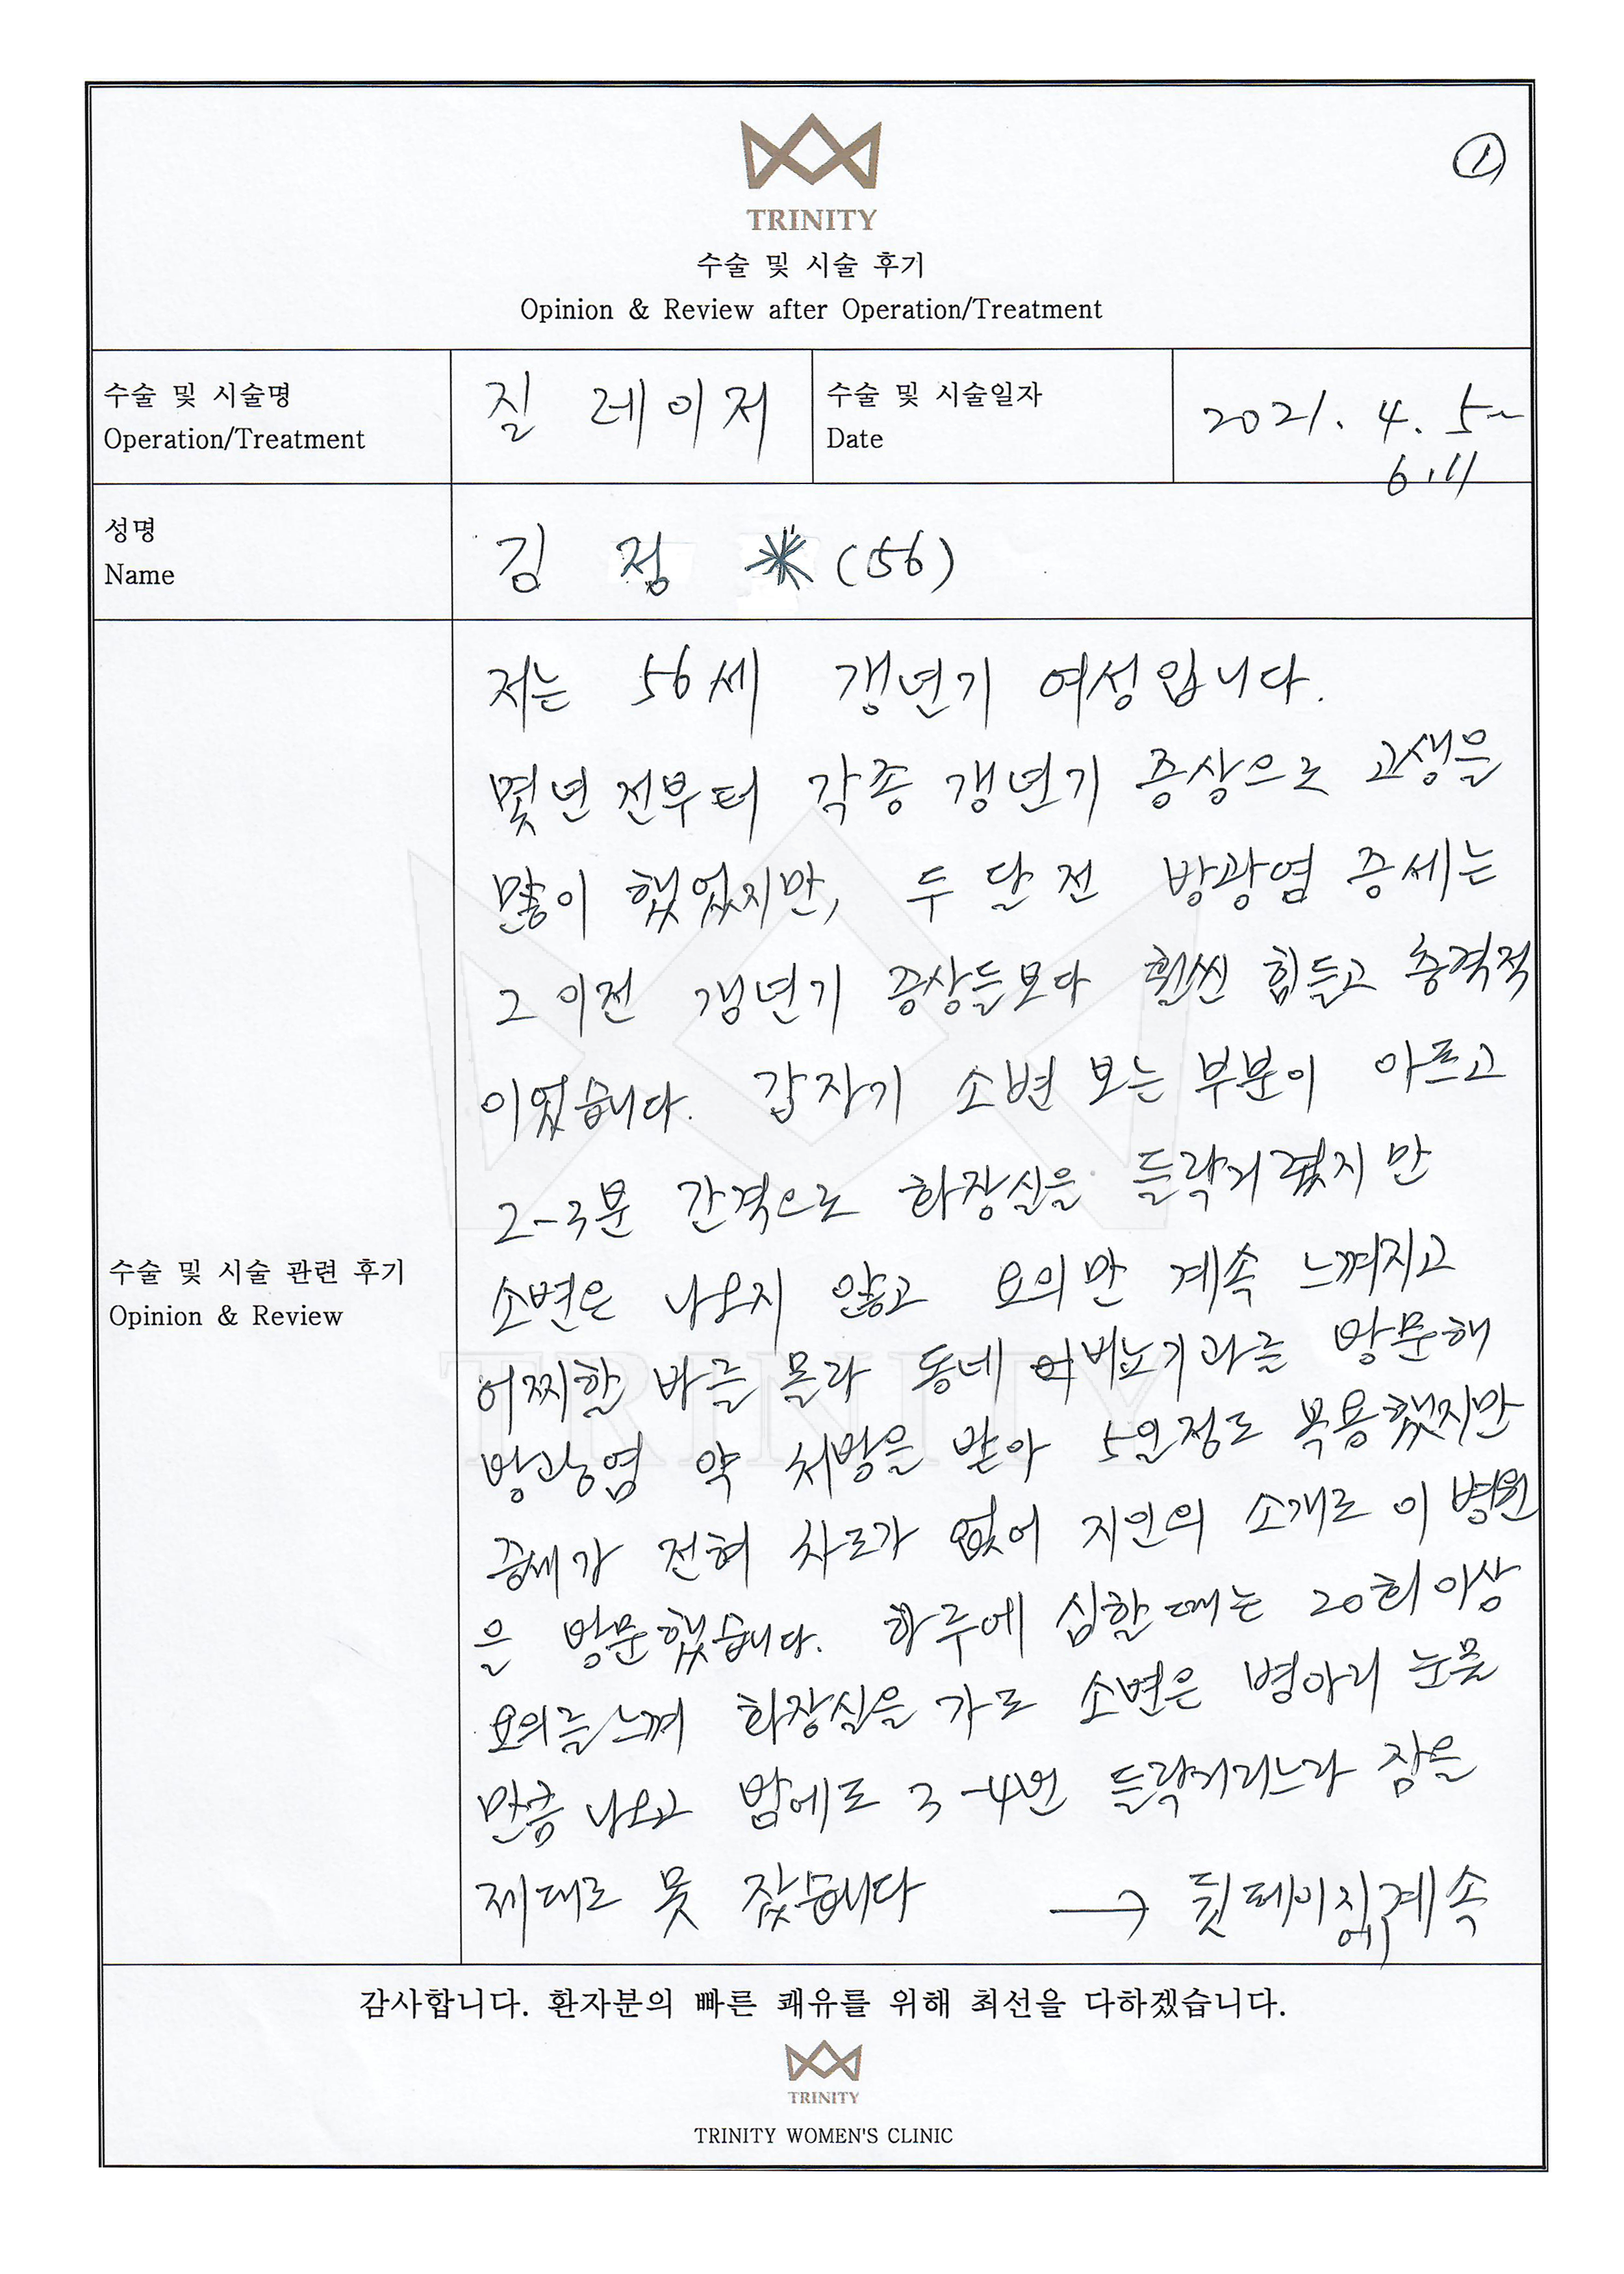 ①
TRINITY
수술 및 시술 후기
Opinion & Review after Operation/Treatment
수술 및 시술명
Operation/Treatment
질 레이저
수술 및 시술일자
Date
2021. 4. 5~
6.11
성명
Name
김 정 * (56)
수술 및 시술 관련 후기
Opinion & Review
저는 56세 갱년기 여성입니다.
몇년 전부터 각종 갱년기 증상으로 고생을
많이 했었지만, 두 달 전 방광염 증세는
그 이전 갱년기 증상들보다 훨씬 힘들고 충격적
이었습니다. 갑자기 소변 보는 부분이 아프고
2-3분 간격으로 화장실을 들락거렸지만
소변은 나오지 않고 요의만 계속 느껴지고
어찌할 바를 몰라 동네 비뇨기과를 방문해
방광염 약 처방을 받아 5일정도 복용했지만
증세가 전혀 차도가 없어 지인의 소개로 이 병원
을 방문했습니다. 하루에 심할 때는 20회 이상
요의를 느껴 화장실을 가도 소변은 병아리 눈물
만큼 나오고 밤에도 3-4번 들락거리느라 잠을
제대로 못 잤습니다 → 뒷페이지에 계속
감사합니다. 환자분의 빠른 쾌유를 위해 최선을 다하겠습니다.
TRINITY
TRINITY WOMEN'S CLINIC